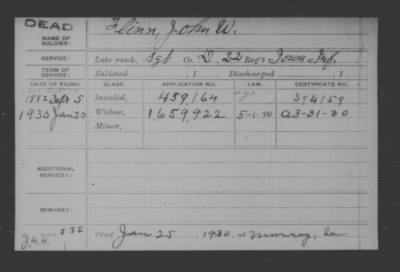 DEAD
NAME OF SOLDIER: Flinn, John W.
SERVICE: Late rank, Sgt Co. D, 22 Reg't Iowa Inf.
TERM OF SERVICE: Enlisted , 1 Discharged , 1
DATE OF FILING. CLASS. APPLICATION NO. LAW. CERTIFICATE NO.
1882 Sept 5 Invalid, 459164 394159
1930 Jan 30 Widow, 1,659,922 5-1-20 A3-31-30
Minor,
ADDITIONAL SERVICES:
REMARKS:
Died Jan 25, 1930, at Murray, Ia